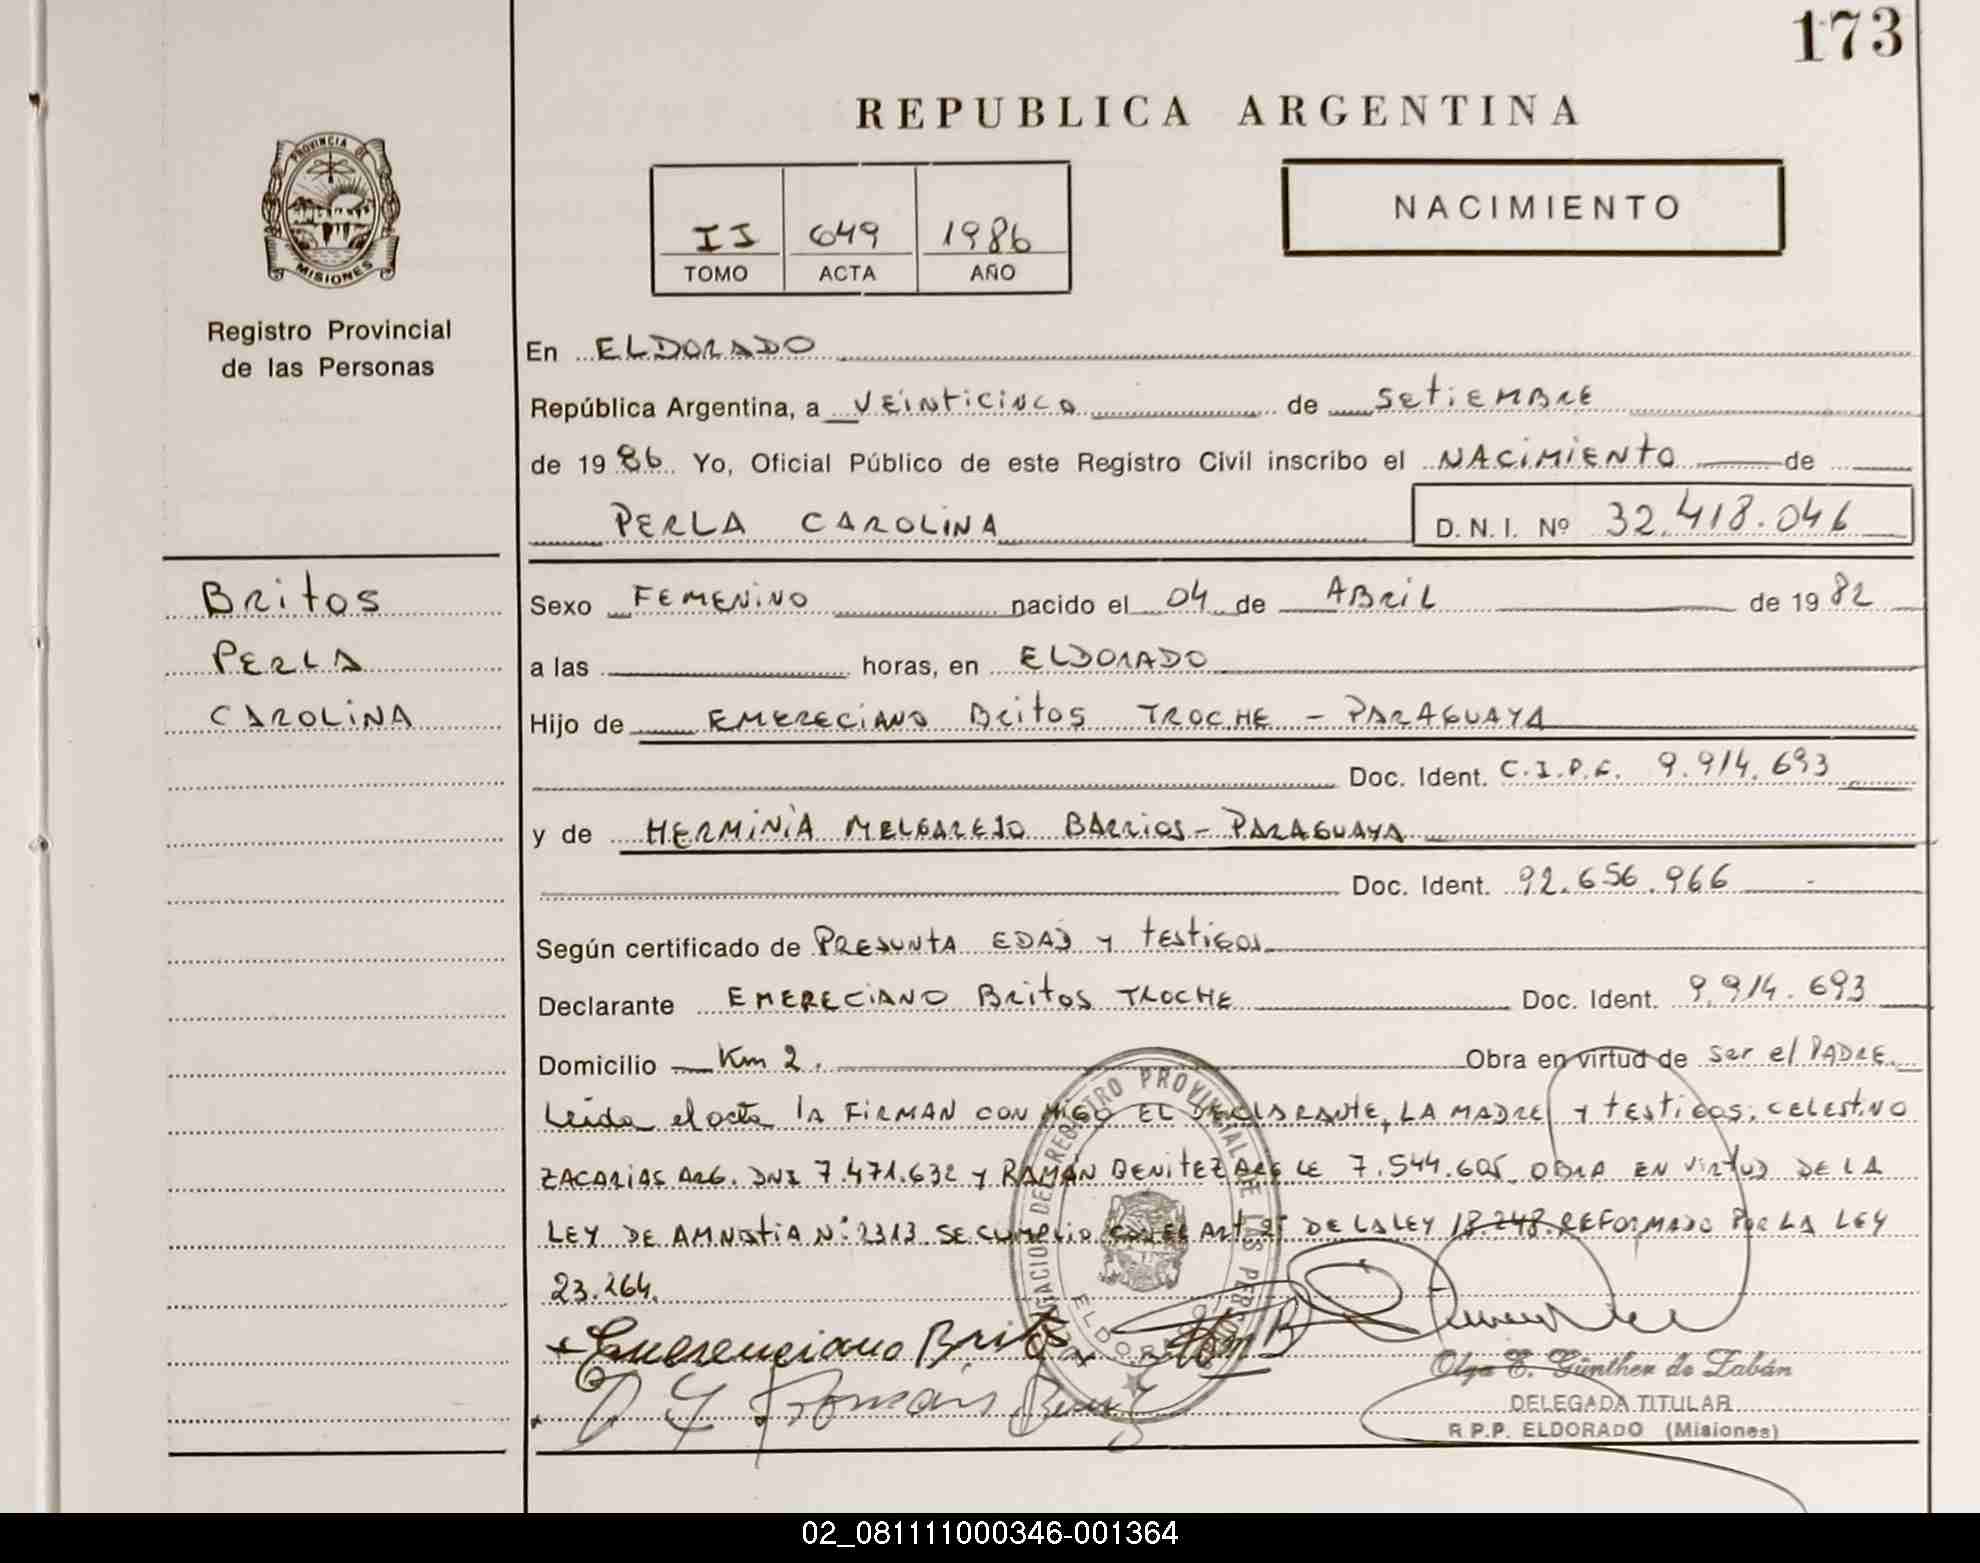 173
REPUBLICA ARGENTINA
PROVINCIA DE
MISIONES
Registro Provincial
de las Personas
II 649 1986
TOMO ACTA AÑO
NACIMIENTO
En ELDORADO
República Argentina, a VEiNtiCiNCO de SetiEMBRE
de 1986. Yo, Oficial Público de este Registro Civil inscribo el NACiMiENtO de
PERLA CAROLiNA D. N. I. Nº 32.418.046
Britos
PERLA
CAROLiNA
Sexo FEMENiNO nacido el 04 de ABRiL de 1982
a las horas, en ELDORADO
Hijo de EMERECiANO BRitOS TROCHE - PARAGUAYA
Doc. Ident. C.I.P.F. 9.914.693
y de HERMiNiA MELGAREJO BARRiOS - PARAGUAYA
Doc. Ident. 92.656.966
Según certificado de PRESUNtA EDAD y testigos
Declarante EMERECiANO BRitOS TROCHE Doc. Ident. 9.914.693
Domicilio Km 2. Obra en virtud de ser el PADRE.
Leida el acta la FiRMAN CONMiGO EL DECLARANtE, LA MADRE y tEStiGOS: CELEStiNO
ZACARiAS ARG. DNI 7.471.632 y RAMÓN BENitEZ ARG LE 7.544.605. OBRA EN ViRtUD DE LA
LEY DE AMNiStiA Nº 2313. SE CUMPLiO CON EL ARt. 2º DE LA LEY 18.248. REFORMADO POR LA LEY
23.264.
REGISTRO PROVINCIAL DE LAS PERSONAS
ELDORADO
Emerenciano Britos
Ramón Benitez
Olga E. Günther de Zabán
DELEGADA TITULAR
R.P.P. ELDORADO (Misiones)
02_081111000346-001364